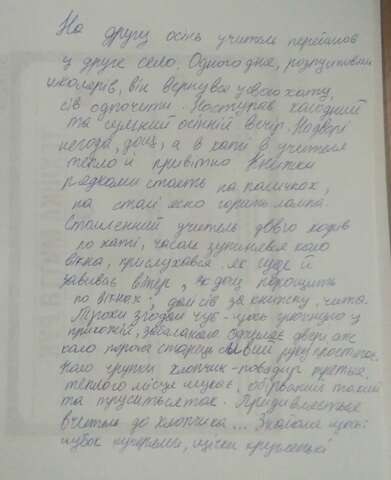 На другу осінь учитель перейшов
у друге село. Одного дня, розпустивши
школярів, він вернувся у свою хату,
сів одпочити. Наступав холодний
та сумний осінній вечір. Надворі
негода, дощ, а в хаті в учителя
тепло й привітно. Книжки
рядками стоять на поличках,
на столі ясно горить лампа.
Стомлений учитель довго ходив
по хаті, часом зупинявся коло
вікна, прислухався як гуде й
завиває вітер, як дощ періщить
по вікнах; далі сів за книжку, чита
Трохи згодом чує - щось грюкнуло у
прихожій, забалакало. Одчиняє двері аж
коло порога старець сивий руку простягає.
Коло грубки хлопчик-поводир треться,
теплого місця шукає, обірваний такий
та труситься так. Придивляється
вчитель до хлопчика... Знайоме щось:
чубок кучерями, щічки кругленькі